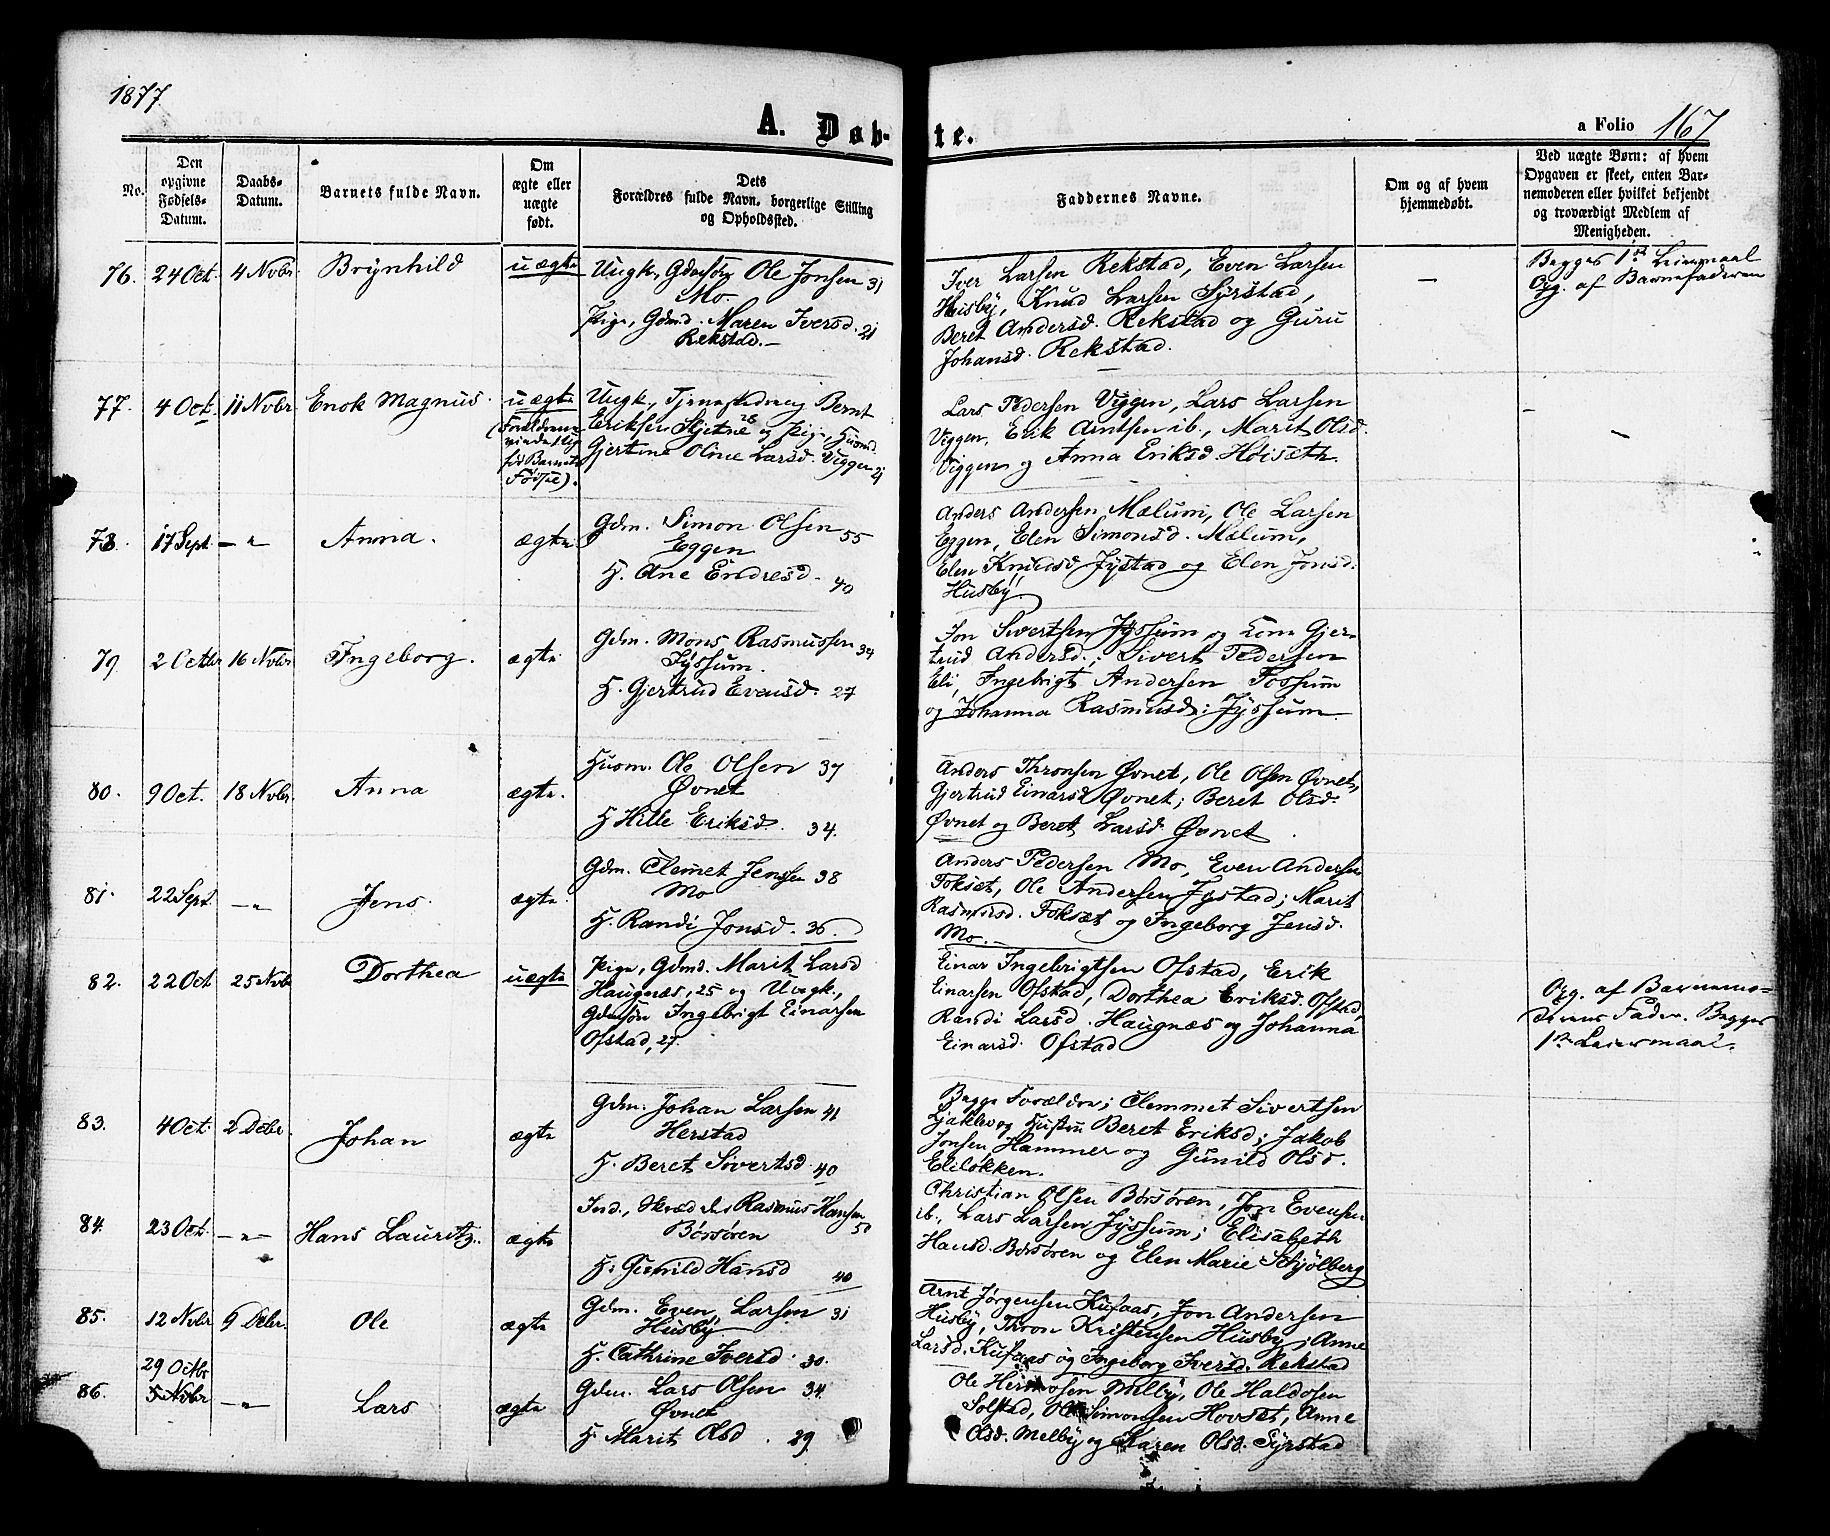 1877
A. Døb-
te.
a Folio 167
No.
Den
opgivne
Fødsels-
Datum.
Daabs-
Datum.
Barnets fulde Navn.
Om
ægte eller
uægte
født.
Dets
Forældres fulde Navn, borgerlige Stilling
og Opholdssted.
Faddernes Navne.
Om og af hvem
hjemmedøbt.
Ved uægte Børn: af hvem
Opgaven er skeet, enten Bar-
nemoderen eller hvilket bekjendt
og troværdigt Medlem af
Menigheden.
76. 24 Oct. 4 Novbr. Brynhild uægte
Ungk., Gdmsøn Ole Jonsen 31
Mo.
Pige, Gdmd. Maren Iversd. 21
Rekstad.
Iver Larsen Rekstad, Even Larsen
Husby, Knud Larsen Syrstad,
Beret Andersd. Rekstad og Guru
Johansd. Rekstad.
—
Begges 1ste Leiermaal
Opg. af Barnefaderen
77. 4 Oct. 11 Novbr. Enok Magnus. uægte
(Forældrene
for Barnets
Fødsel).
Ungk., Bernt
Eriksen Skjetne 28 og Pige, Husmd.
Gjertine Oline Larsd. Viggen 21
Lars Pedersen Viggen, Lars Larsen
Viggen, Erik Arntsen ib., Marit Olsd.
Viggen og Anna Eriksd. Høisæth.
—
—
78. 17 Sept. — " Anna. ægte
Gdm. Simon Olsen 55
Eggen
H. Ane Endresd. 40
Anders Andersen Mælum, Ole Larsen
Eggen, Elen Simonsd. Mælum,
Elen Knudsd. Jystad og Elen Jonsd.
Husby.
79. 2 Octbr. 16 Novbr. Ingeborg. ægte
Gdm. Mons Rasmussen 34
Jyssum.
H. Gjertrud Evensd. 27
Jon Sivertsen Jyssum og Kone Gjer-
trud Andersd.; Sivert Pedersen
Eli, Ingebrigt Andersen Fossum
og Johanna Rasmusd. Jyssum.
80. 9 Oct. 18 Novbr. Anna ægte.
Husm. Ole Olsen 37
Øvnet
H. Hille Eriksd. 34.
Anders Thronsen Øvnet, Ole Olsen Øvnet,
Gjertrud Einarsd. Øvnet; Beret Olsd.
Øvnet og Beret Larsd. Øvnet.
81. 22 Sept. — " Jens. ægte.
Gdm. Clemet Jensen 38
Mo
H. Randi Jonsd. 36.
Anders Pedersen Mo, Even Andersen
Foksæt, Ole Andersen Jystad; Marit
Rasmusd. Foksæt og Ingeborg Jensd.
Mo.
82. 22 Oct. 25 Novbr. Dorthea uægte
Pige, Gdmd. Marit Larsd
Haugnæs, 25 og Ungk.,
Gdmsøn Ingebrigt Einarsen
Ofstad, 27.
Einar Ingebrigtsen Ofstad, Erik
Einarsen Ofstad, Dorthea Eriksd. Ofstad,
Randi Larsd. Haugnæs og Johanna
Einarsd. Ofstad
Opg. af Barnemo-
derens Fader. Begges
1ste Leiermaal.
83. 4 Oct. 2 Debr. Johan ægte
Gdm. Johan Larsen 41
Herstad
H. Beret Sivertsd. 40
Begge Forældre; Clemmet Sivertsen
og Hustru Beret Eriksd; Jakob
Jonsen Hammer og Gunild Olsd.
Elilokken.
84. 23 Oct. — " — Hans Lauritz. ægte
Ind., Skrædder Rasmus Hansen
51
Børsøren
H. Gunild Hansd 40
Christian Olsen Børsøren, Jon Evensen
ib., Lars Larsen Jyssum; Elisabeth
Hansd. Børsøren og Elen Marie Schjølberg
85. 12 Novbr 9 Debr. Ole ægte
Gdm. Even Larsen 31
Husby
H. Cathrine Iversd. 30.
Arnt Jørgensen Kufaas, Jon Andersen
Husby, Thron Kristensen Husby; Anne
Larsd. Kufaas og Ingeborg Iversd. Rekstad
86. 29 Octbr
5 Novbr — " Lars ægte
Gdm. Lars Olsen 34
Øvnet
H. Marit Olsd. 29
Ole Melby, Ole Haldosen
Solstad, Ole Simonsen Hovsæt, Anne
Olsd. Melby og Karen Olsd. Syrstad